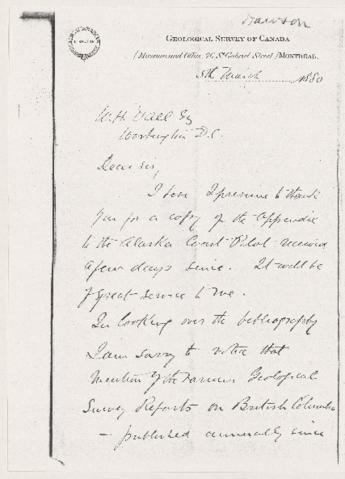 Dawson
GEOLOGICAL SURVEY OF CANADA
(Museum and Office, 76 St Gabriel Street) MONTREAL.
5th March 1880
W.H. Dall Esq
Washington D.C.
Dear sir,
I have I presume to thank
you for a copy of the Appendix
to the Alaska Coast Pilot received
a few days since. It will be
of great service to me.
In looking over the bibliography
I am sorry to notice that
mention of the various Geological
Survey Reports on British Columbia
— published annually since